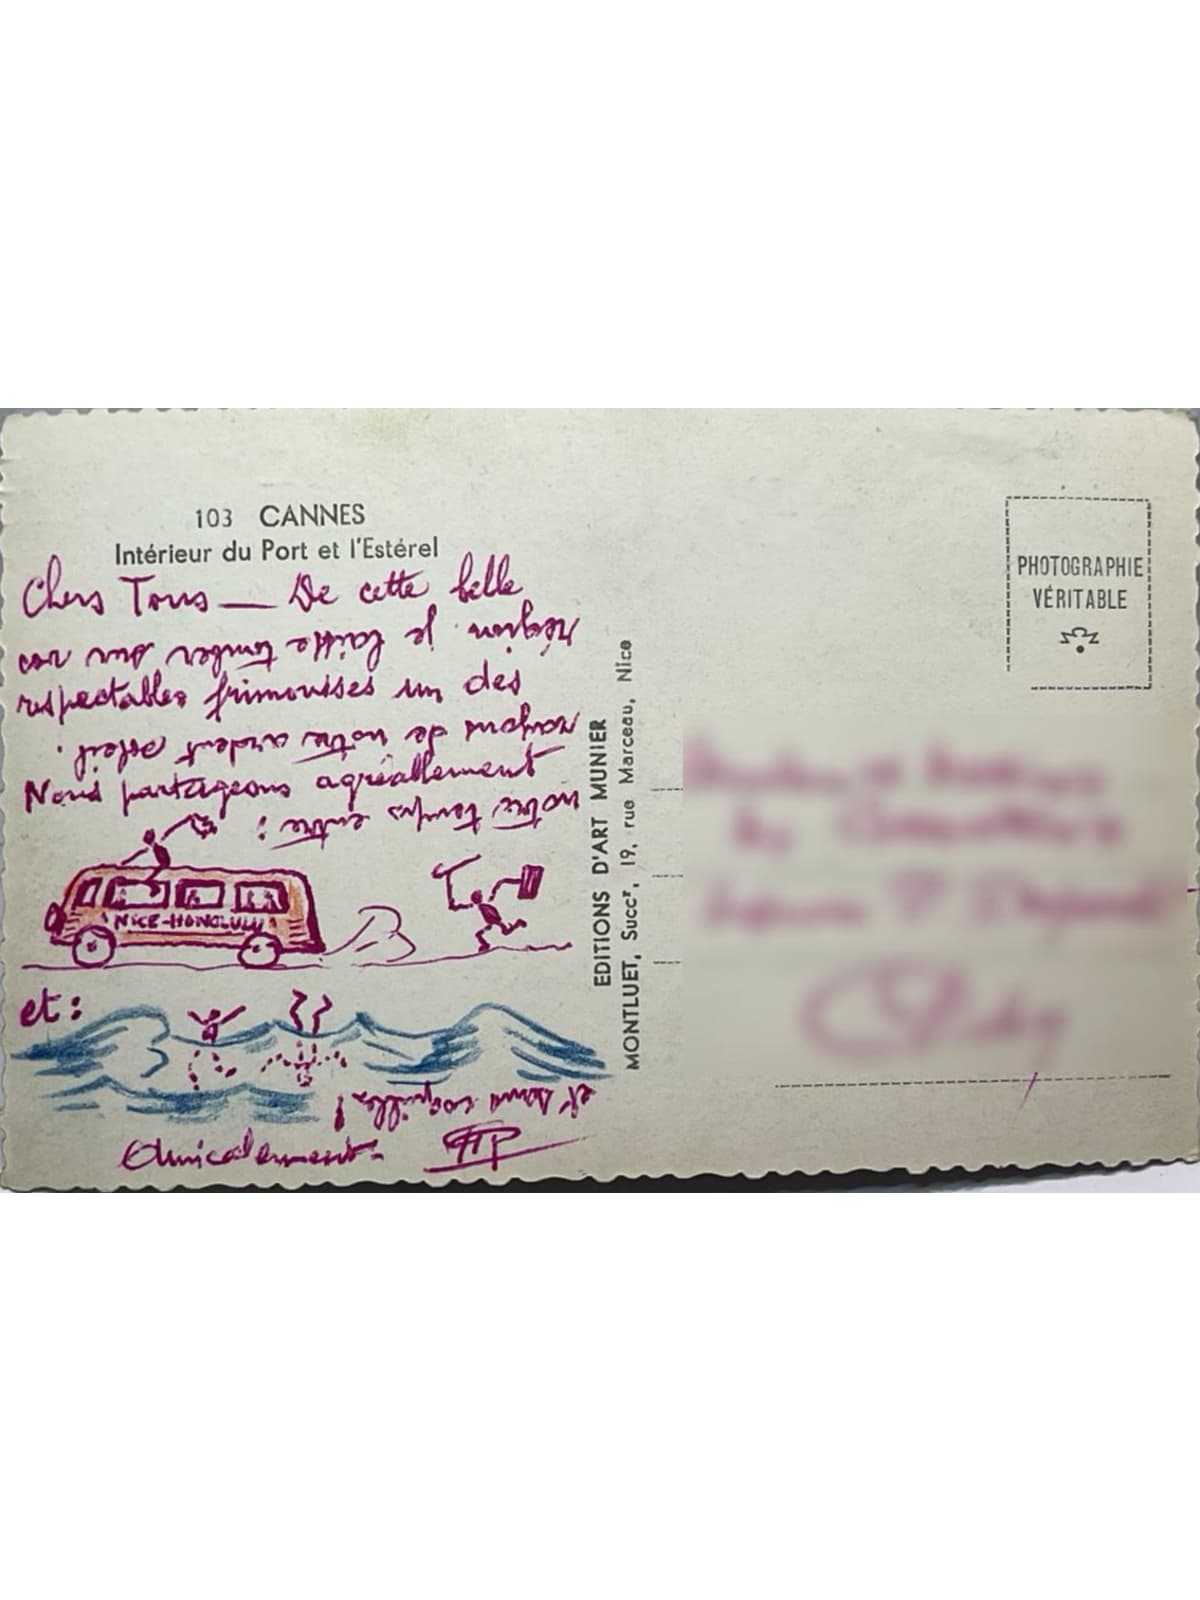 103 CANNES
Intérieur du Port et l'Estérel
Chers Tous — De cette belle
région je laisse tomber sur vos
respectables frimousses un des
rayons de notre ardent soleil.
Nous partageons agréablement
notre temps entre :
NICE-HONOLULU
et :
et sans coquilles !
Amicalement
EDITIONS D'ART MUNIER
MONTLUET, Succʳ, 19, rue Marceau, Nice
PHOTOGRAPHIE
VÉRITABLE